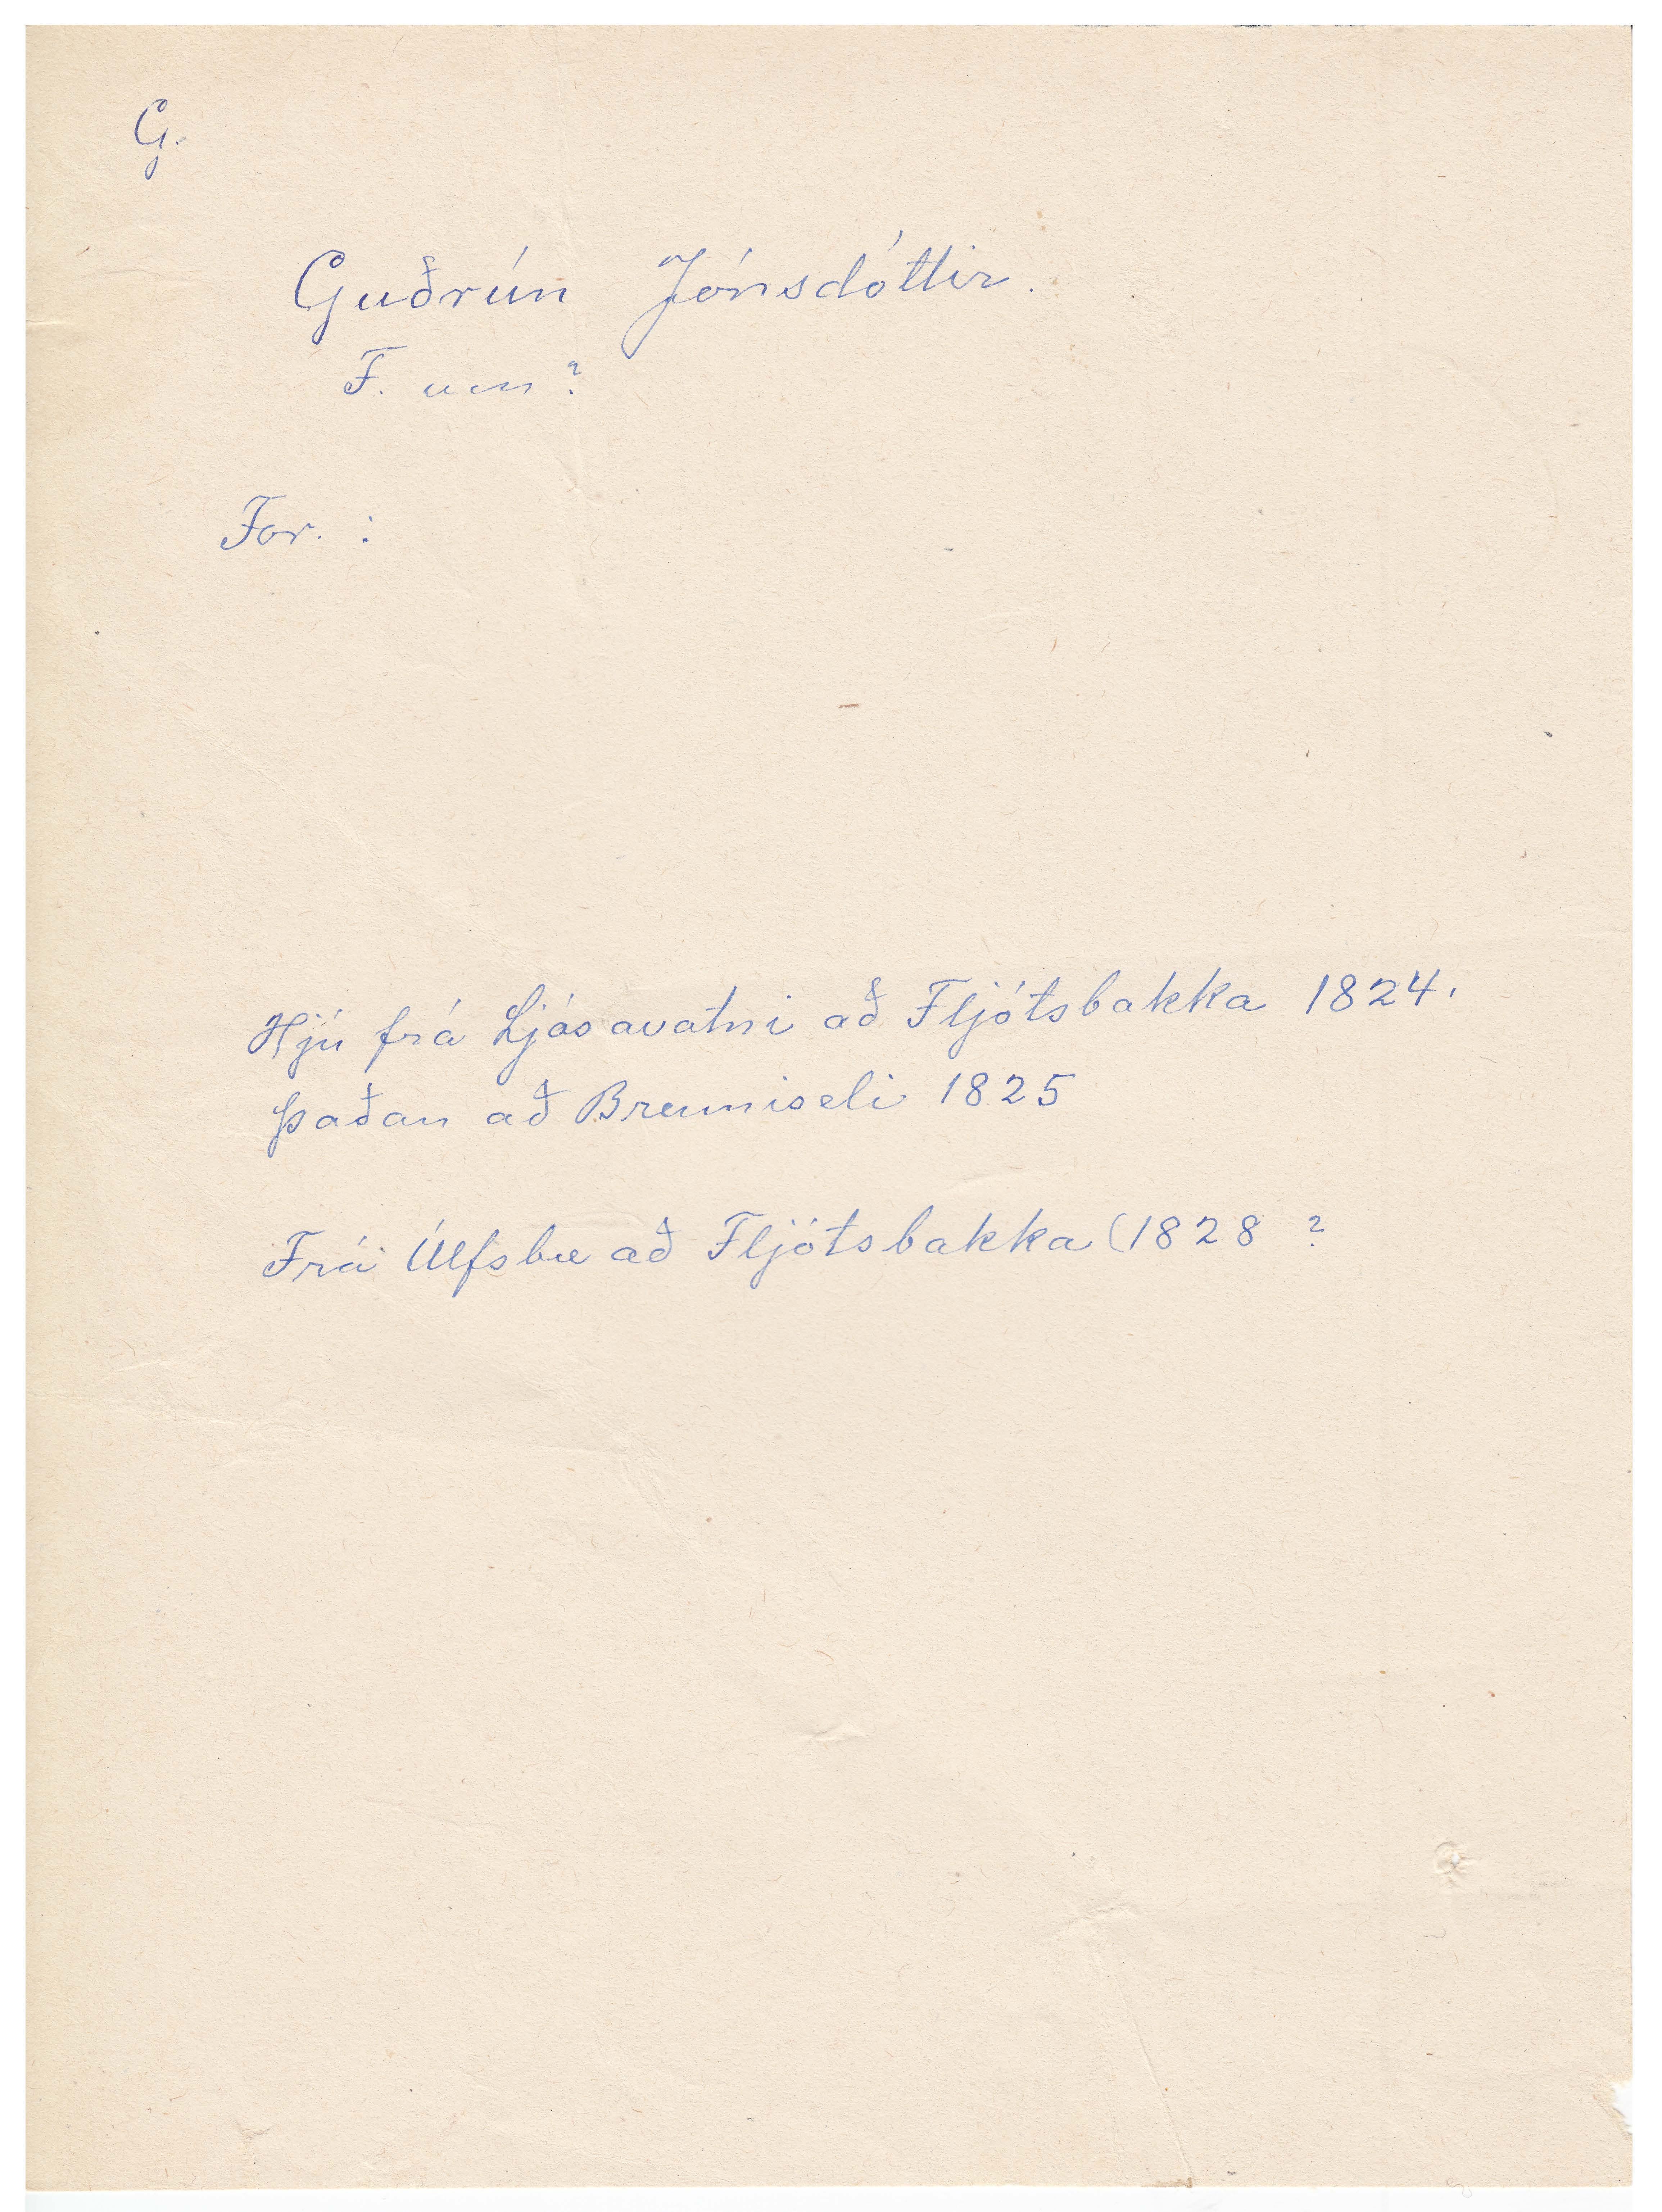 G.
Guðrún Jónsdóttir.
F. um ?
For. :
Hjú frá Ljósavatni að Fljótsbakka 1824.
þaðan að Brenniseli 1825
Frá Úlfsbæ að Fljótsbakka (1828 ?